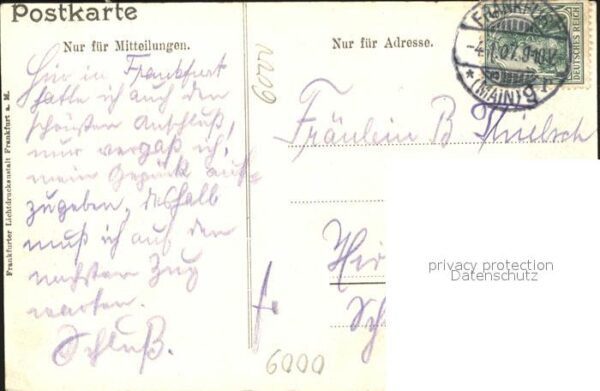 Postkarte
Nur für Mitteilungen.
Hier in Frankfurt
hatte ich auch den
schönsten Anschluß,
nur vergaß ich,
mein Gepäck auf-
zugeben, deshalb
muß ich auf den
nächsten Zug
warten.
Schluß.
Frankfurter Lichtdruckanstalt Frankfurt a. M.
6000
Nur für Adresse.
FRANKFURT
(MAIN)
DEUTSCHES REICH
Fräulein B
privacy protection
Datenschutz
6000